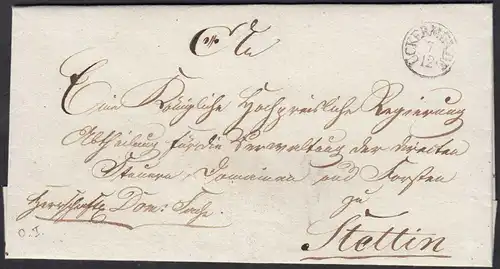 An
UCKERMÜNDE
7
12
Eine Königliche Hochpreisliche Regierung
Abtheilung für die Verwaltung der directen
Steuern, Domainen und Forsten
zu
Herrschaftl. Dom: Sache
Stettin